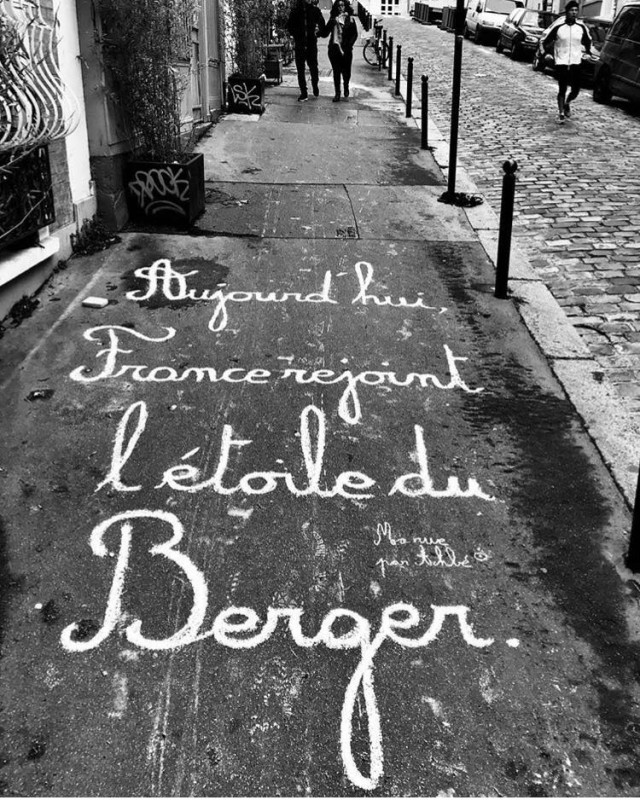 Aujourd'hui,
France rejoint
l'étoile du
Berger.
Ma rue
par Achbé